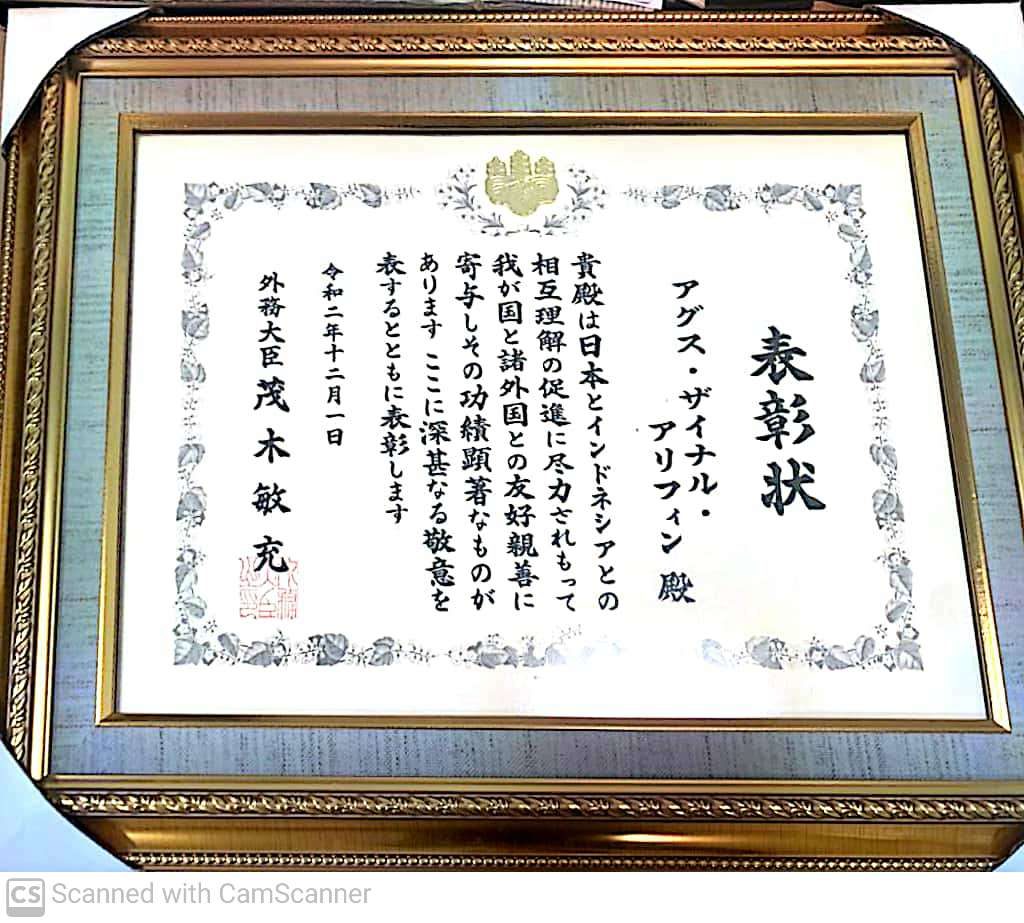 表彰状
アグス・ザイナル・
アリフィン 殿
貴殿は日本とインドネシアとの
相互理解の促進に尽力されもって
我が国と諸外国との友好親善に
寄与しその功績顕著なものが
あります ここに深甚なる敬意を
表するとともに表彰します
令和二年十二月一日
外務大臣 茂木敏充
CS Scanned with CamScanner